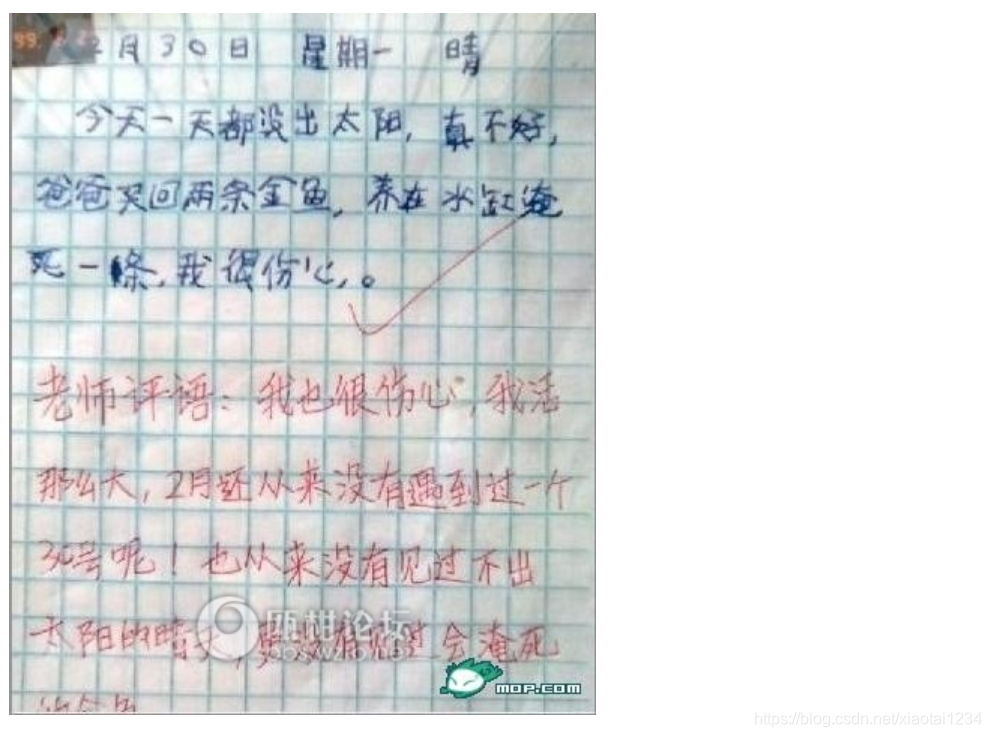 2月30日 星期一 晴
今天一天都没出太阳，真不好，
爸爸买回两条金鱼，养在水缸淹
死一條，我很伤心，。
老师评语：我也很伤心，我活
那么大，2月还从来没有遇到过一个
30号呢！也从来没有见过不出
太阳的晴天，更没有见过会淹死
的金鱼
瓯柑论坛
MOP.COM
https://blog.csdn.net/xiaotai1234